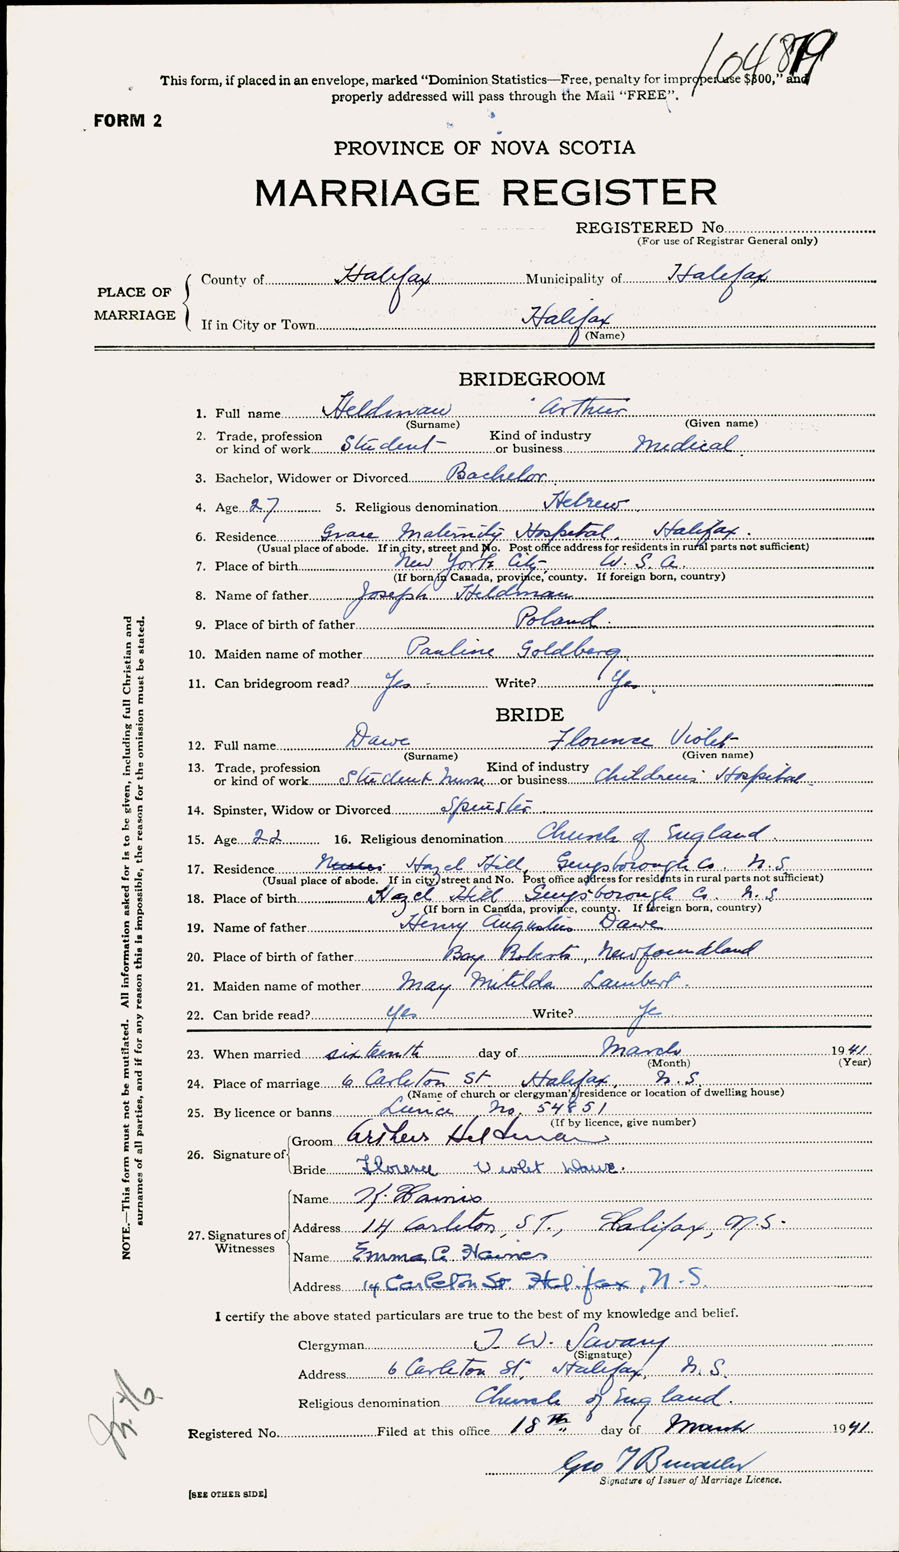 104879
This form, if placed in an envelope, marked "Dominion Statistics—Free, penalty for improper use $300," and
properly addressed will pass through the Mail "FREE".
FORM 2
PROVINCE OF NOVA SCOTIA
MARRIAGE REGISTER
REGISTERED No.
(For use of Registrar General only)
PLACE OF MARRIAGE
County of Halifax Municipality of Halifax
If in City or Town Halifax
(Name)
BRIDEGROOM
1. Full name Heldman Arthur
(Surname) (Given name)
2. Trade, profession or kind of work Student Kind of industry or business Medical
3. Bachelor, Widower or Divorced Bachelor
4. Age 27 5. Religious denomination Hebrew
6. Residence Grace Maternity Hospital, Halifax.
(Usual place of abode. If in city, street and No. Post office address for residents in rural parts not sufficient)
7. Place of birth New York City U.S.A.
(If born in Canada, province, county. If foreign born, country)
8. Name of father Joseph Heldman
9. Place of birth of father Poland.
10. Maiden name of mother Pauline Goldberg
11. Can bridegroom read? Yes Write? Yes
BRIDE
12. Full name Dawe Florence Violet
(Surname) (Given name)
13. Trade, profession or kind of work Student Nurse Kind of industry or business Childrens Hospital
14. Spinster, Widow or Divorced Spinster
15. Age 22 16. Religious denomination Church of England
17. Residence Hazel Hill, Guysborough Co. N.S.
(Usual place of abode. If in city, street and No. Post office address for residents in rural parts not sufficient)
18. Place of birth Hazel Hill Guysborough Co. N.S
(If born in Canada, province, county. If foreign born, country)
19. Name of father Henry Augustus Dawe
20. Place of birth of father Bay Roberts, Newfoundland
21. Maiden name of mother May Matilda Lambert.
22. Can bride read? Yes Write? Ye
23. When married sixteenth day of March 1941
(Month) (Year)
24. Place of marriage 6 Carleton St Halifax, N.S.
(Name of church or clergyman's residence or location of dwelling house)
25. By licence or banns Licence No. 54851
(If by licence, give number)
26. Signature of
Groom Arthur Heldman
Bride Florence Violet Dawe.
27. Signatures of Witnesses
Name Haines
Address 14 Carleton, ST., Halifax, N.S.
Name Emma C. Haines
Address 14 Carleton St. Halifax, N.S.
I certify the above stated particulars are true to the best of my knowledge and belief.
Clergyman T. W. Savary
(Signature)
Address 6 Carleton St, Halifax, N.S.
Religious denomination Church of England.
Registered No. Filed at this office 18th day of March 1941
Geo
Signature of Issuer of Marriage Licence.
[SEE OTHER SIDE]
NOTE.—This form must not be mutilated. All information asked for is to be given, including full Christian and
surnames of all parties, and if for any reason this is impossible, the reason for the omission must be stated.